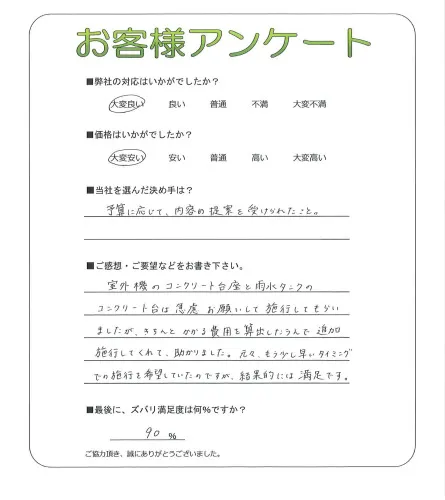 お客様アンケート
■弊社の対応はいかがでしたか？
大変良い 良い 普通 不満 大変不満
■価格はいかがでしたか？
大変安い 安い 普通 高い 大変高い
■当社を選んだ決め手は？
予算に応じて、内容の提案を受けられたこと。
■ご感想・ご要望などをお書き下さい。
室外機のコンクリート台座と雨水タンクの
コンクリート台は急慮お願いして施行してもらい
ましたが、きちんとかかる費用を算出したうえで追加
施行してくれて、助かりました。元々、もう少し早いタイミング
での施行を希望していたのですが、結果的には満足です。
■最後に、ズバリ満足度は何％ですか？
90 ％
ご協力頂き、誠にありがとうございました。